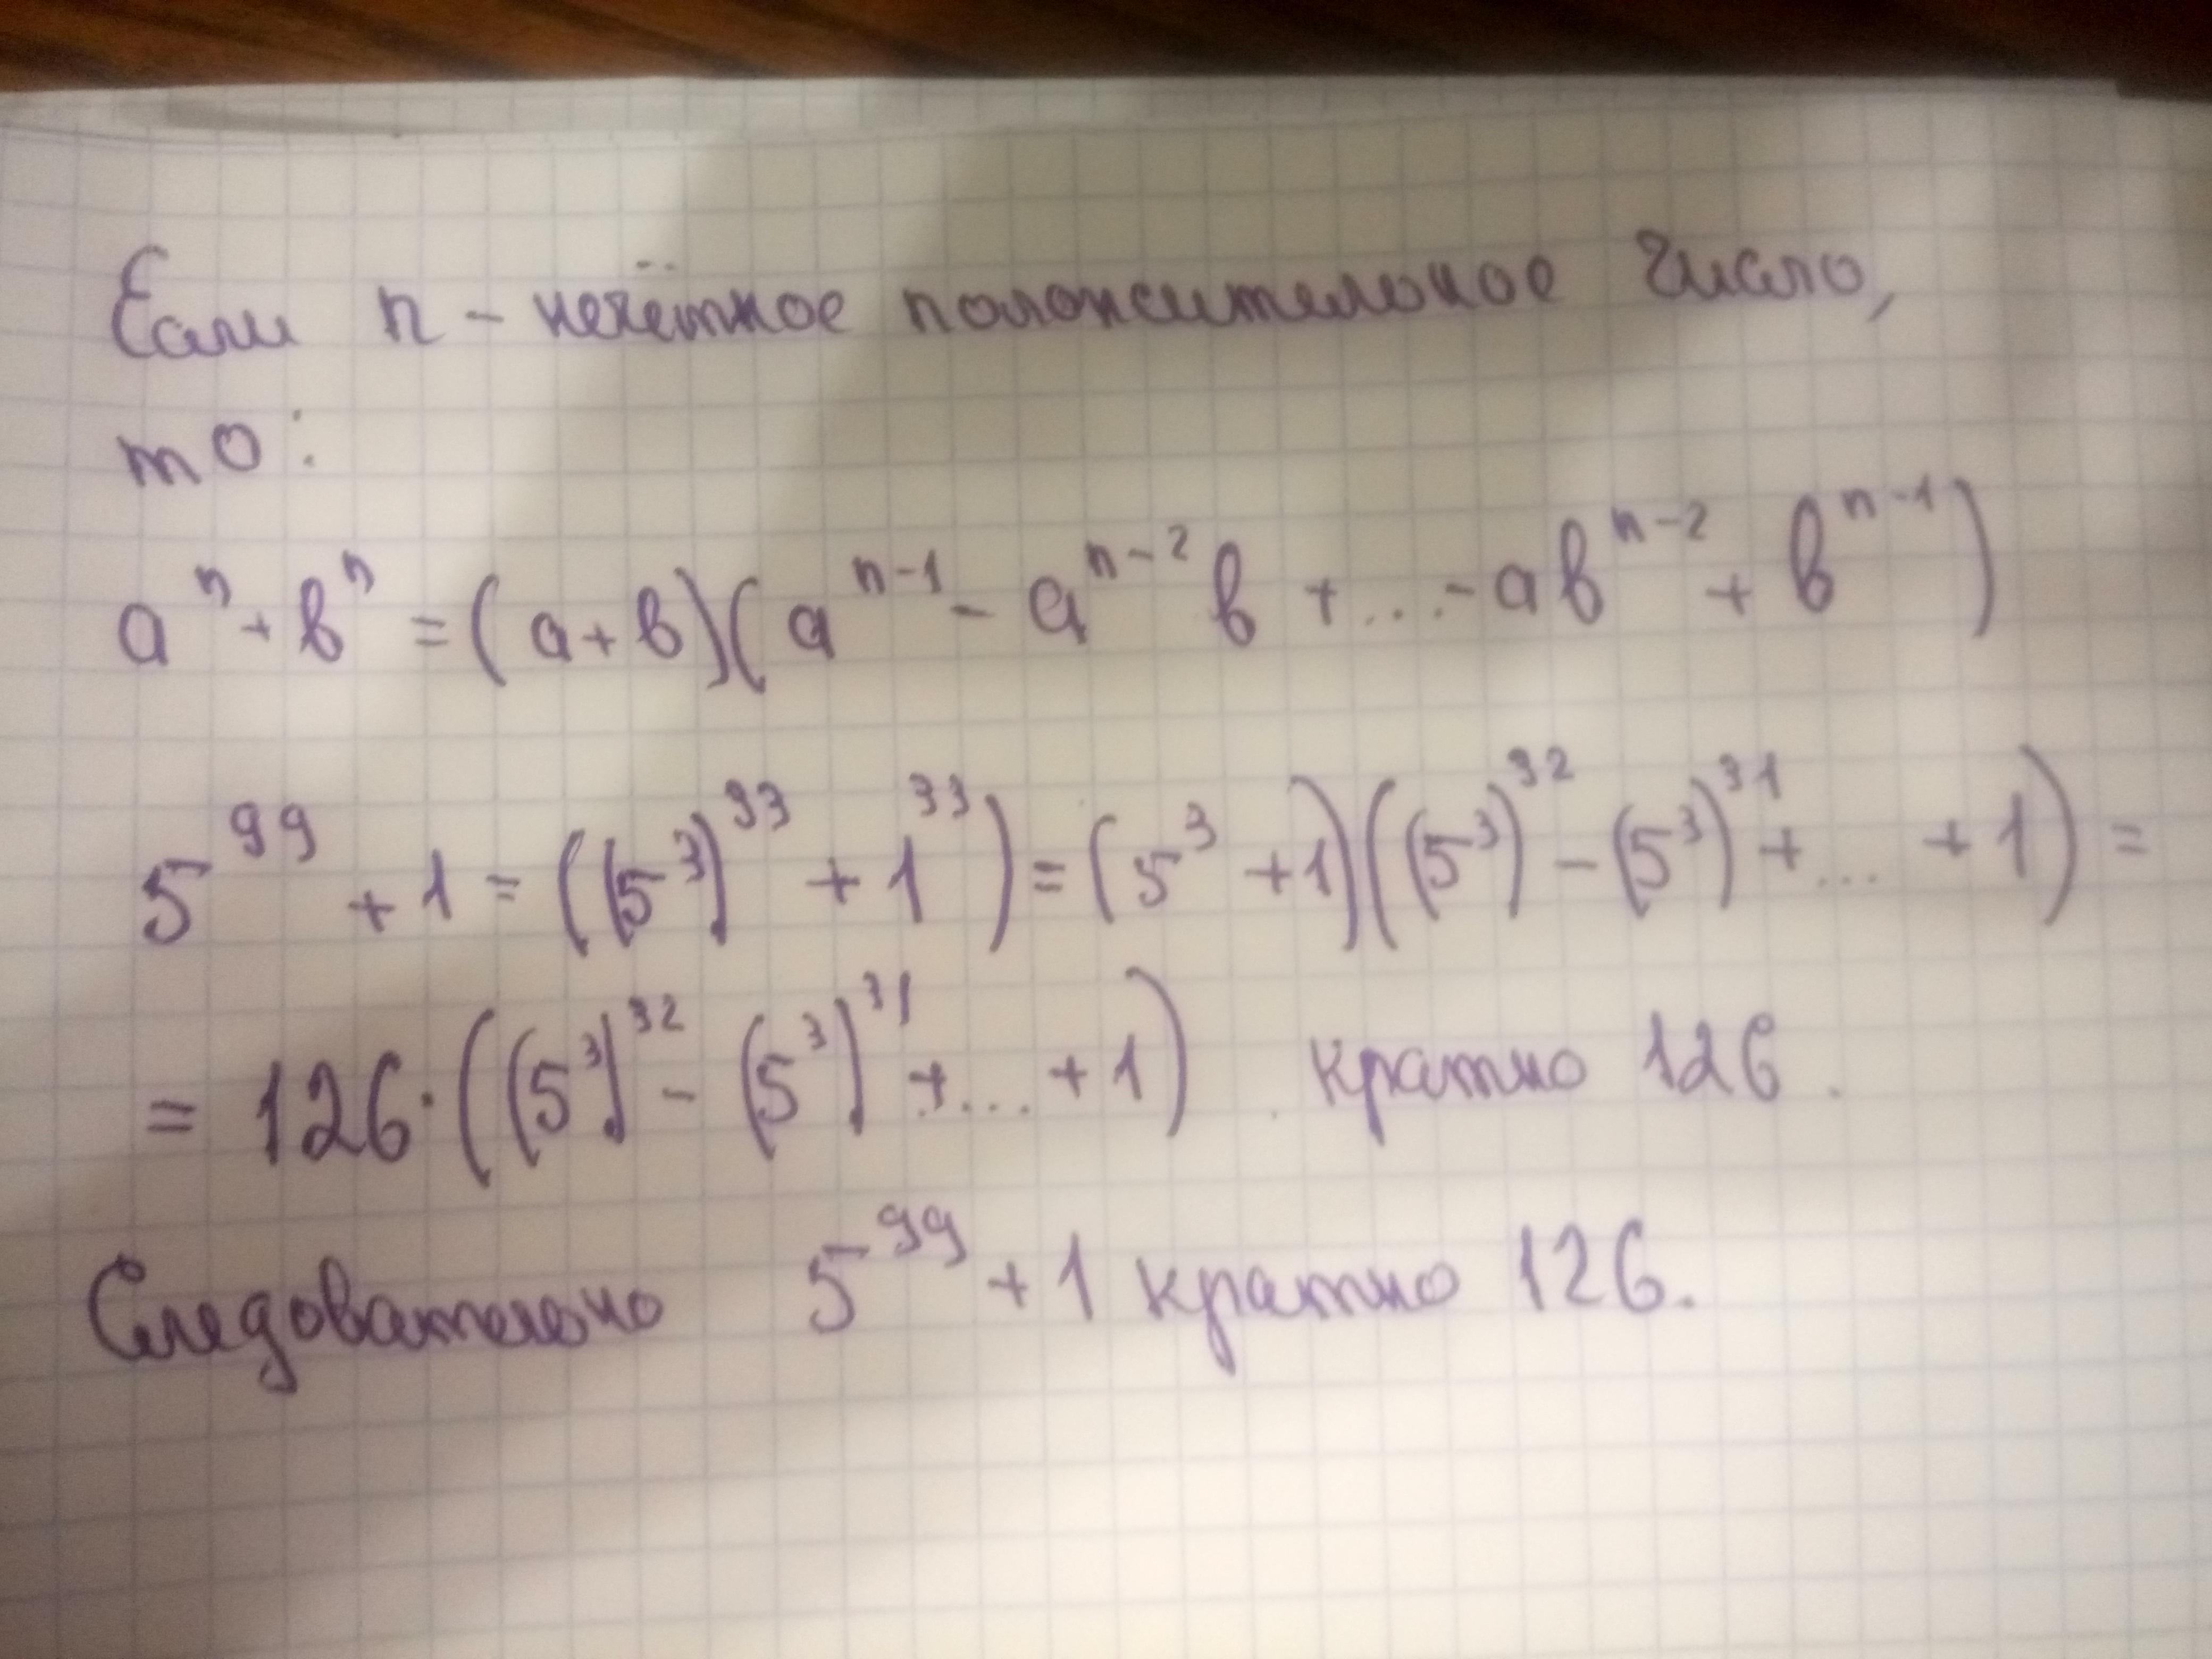 Если n - нечётное положительное число,
то:
aⁿ + bⁿ = (a + b)(aⁿ⁻¹ - aⁿ⁻²b + ... - abⁿ⁻² + bⁿ⁻¹)
5⁹⁹ + 1 = ((5³)³³ + 1³³) = (5³ + 1)((5³)³² - (5³)³¹ + ... + 1) =
= 126·((5³)³² - (5³)³¹ + ... + 1) кратно 126.
Следовательно 5⁹⁹ + 1 кратно 126.